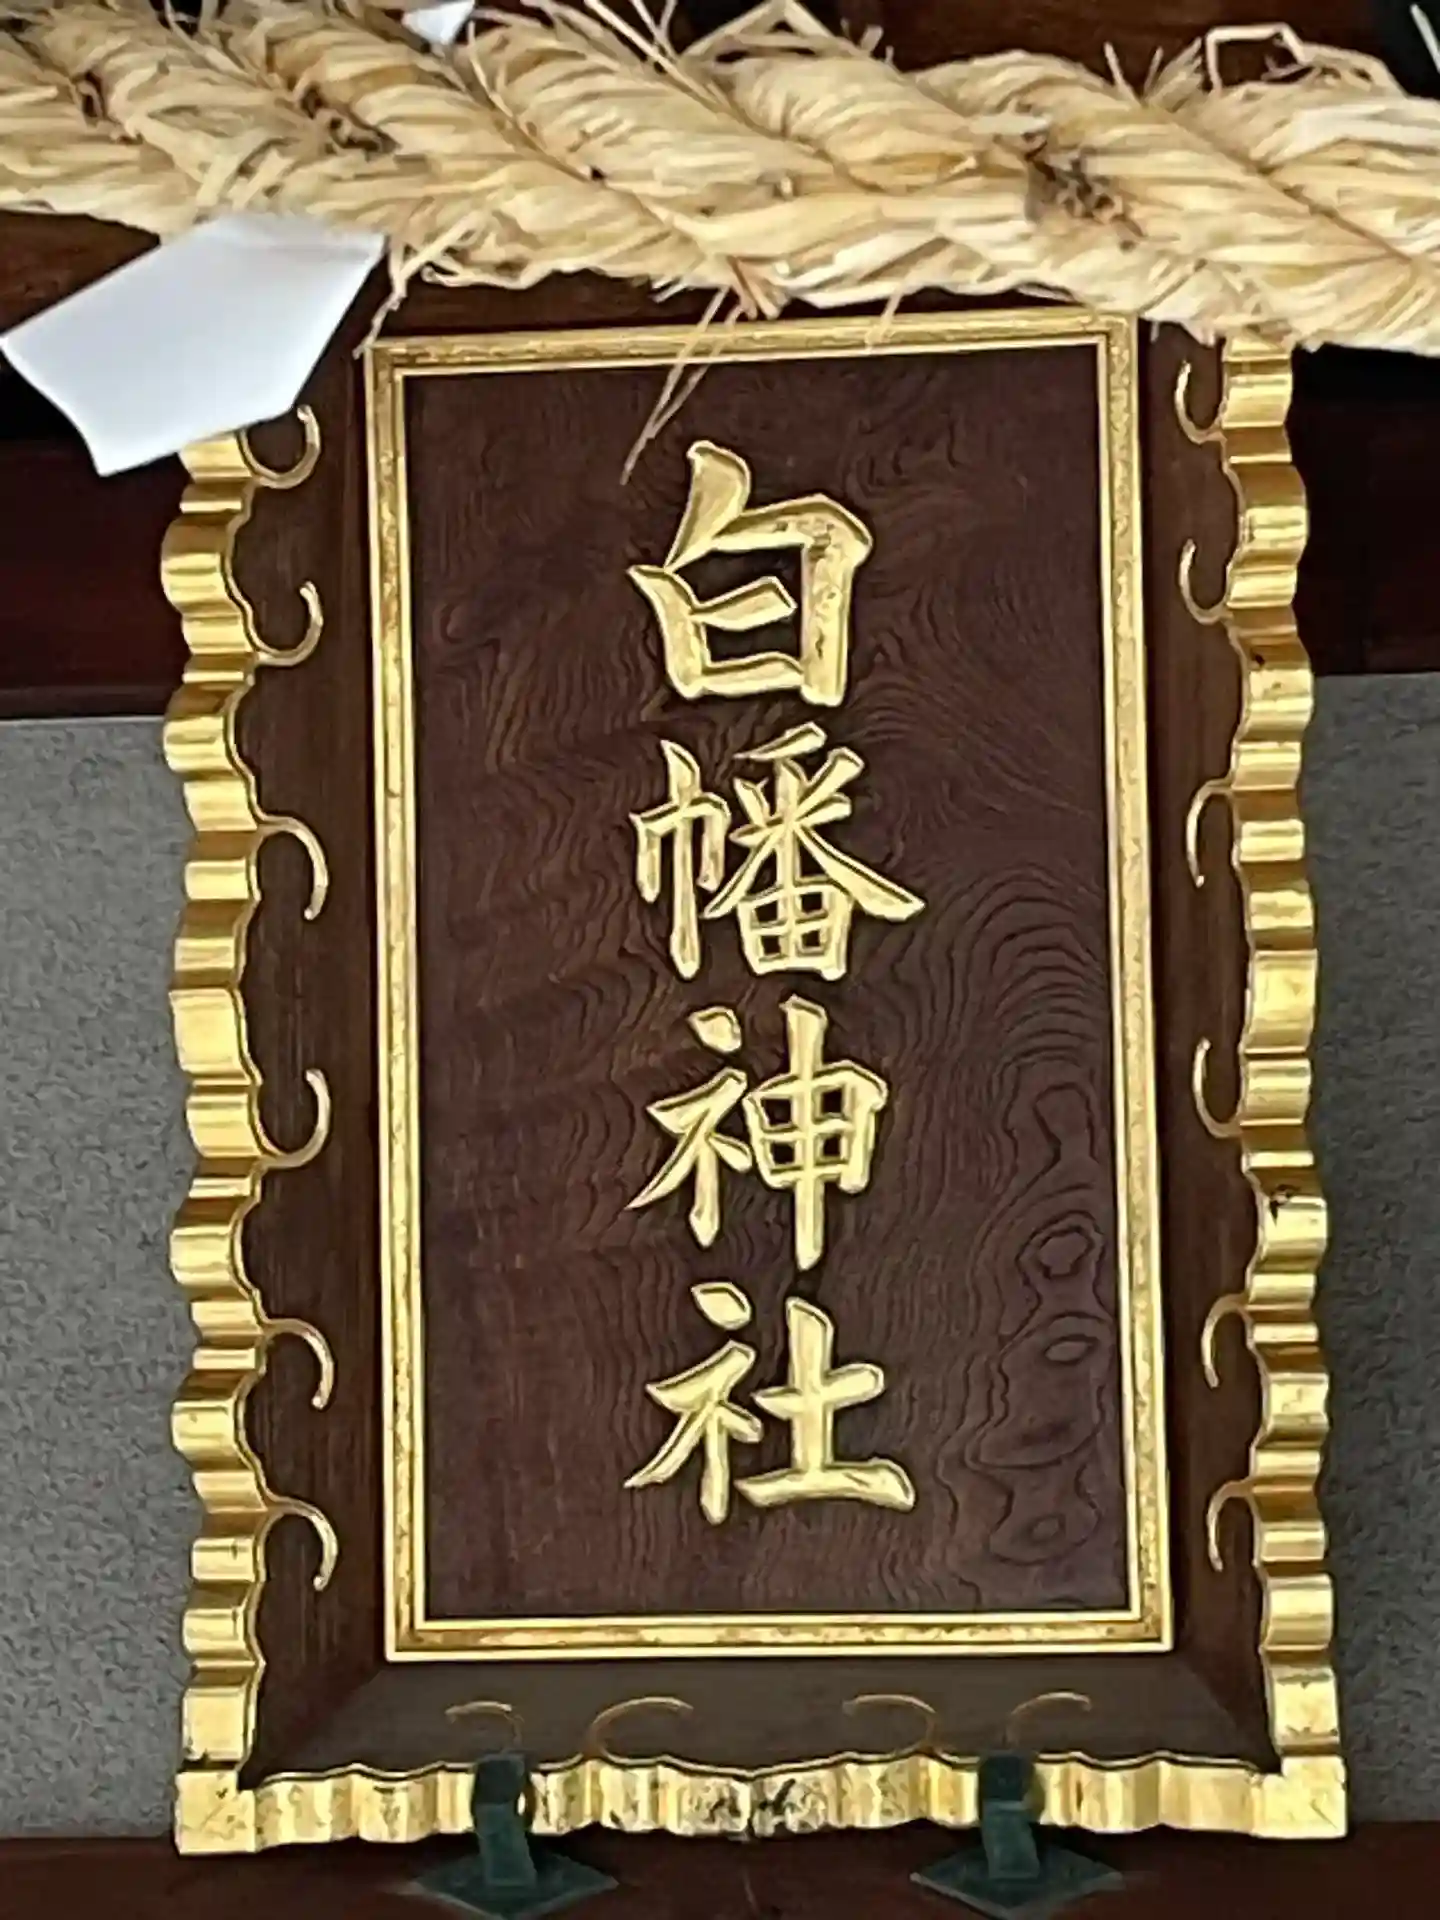 白幡神社